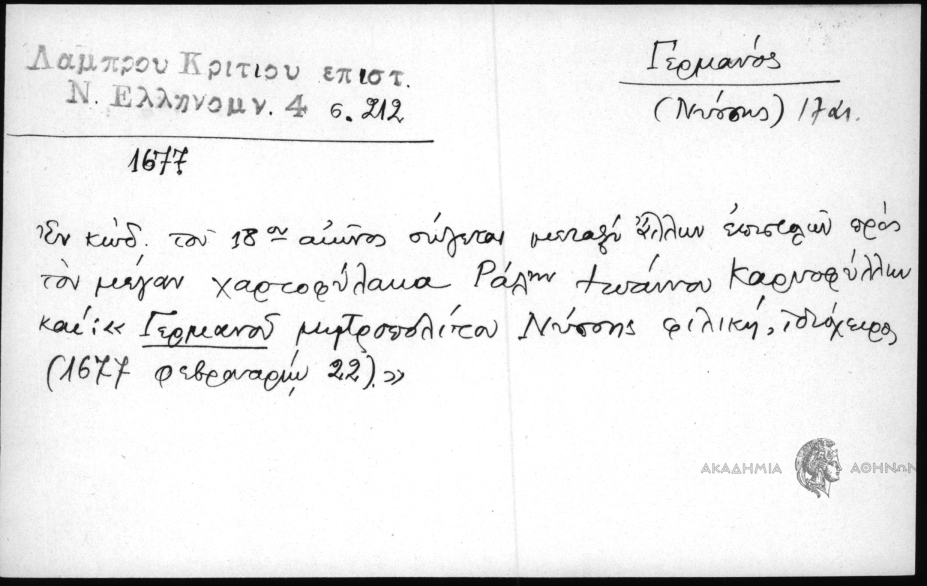 Λαμπρου Κριτιου επιστ.
Ν. Ελληνομν. 4 σ. 212
1677
Γερμανός
(Νύσσης) 17 αι.
Ἐν κώδ. τοῦ 18ου αἰῶνος σώζεται μεταξὺ ἄλλων ἐπιστολῶν πρὸς
τὸν μέγαν χαρτοφύλακα Ράλην Ἰωάννου Καρυοφύλλην
καί: « Γερμανοῦ μητροπολίτου Νύσσης φιλική, ἰδιόχειρος
(1677 φεβρουαρίῳ 22).»
ΑΚΑΔΗΜΙΑ ΑΘΗΝΩΝ